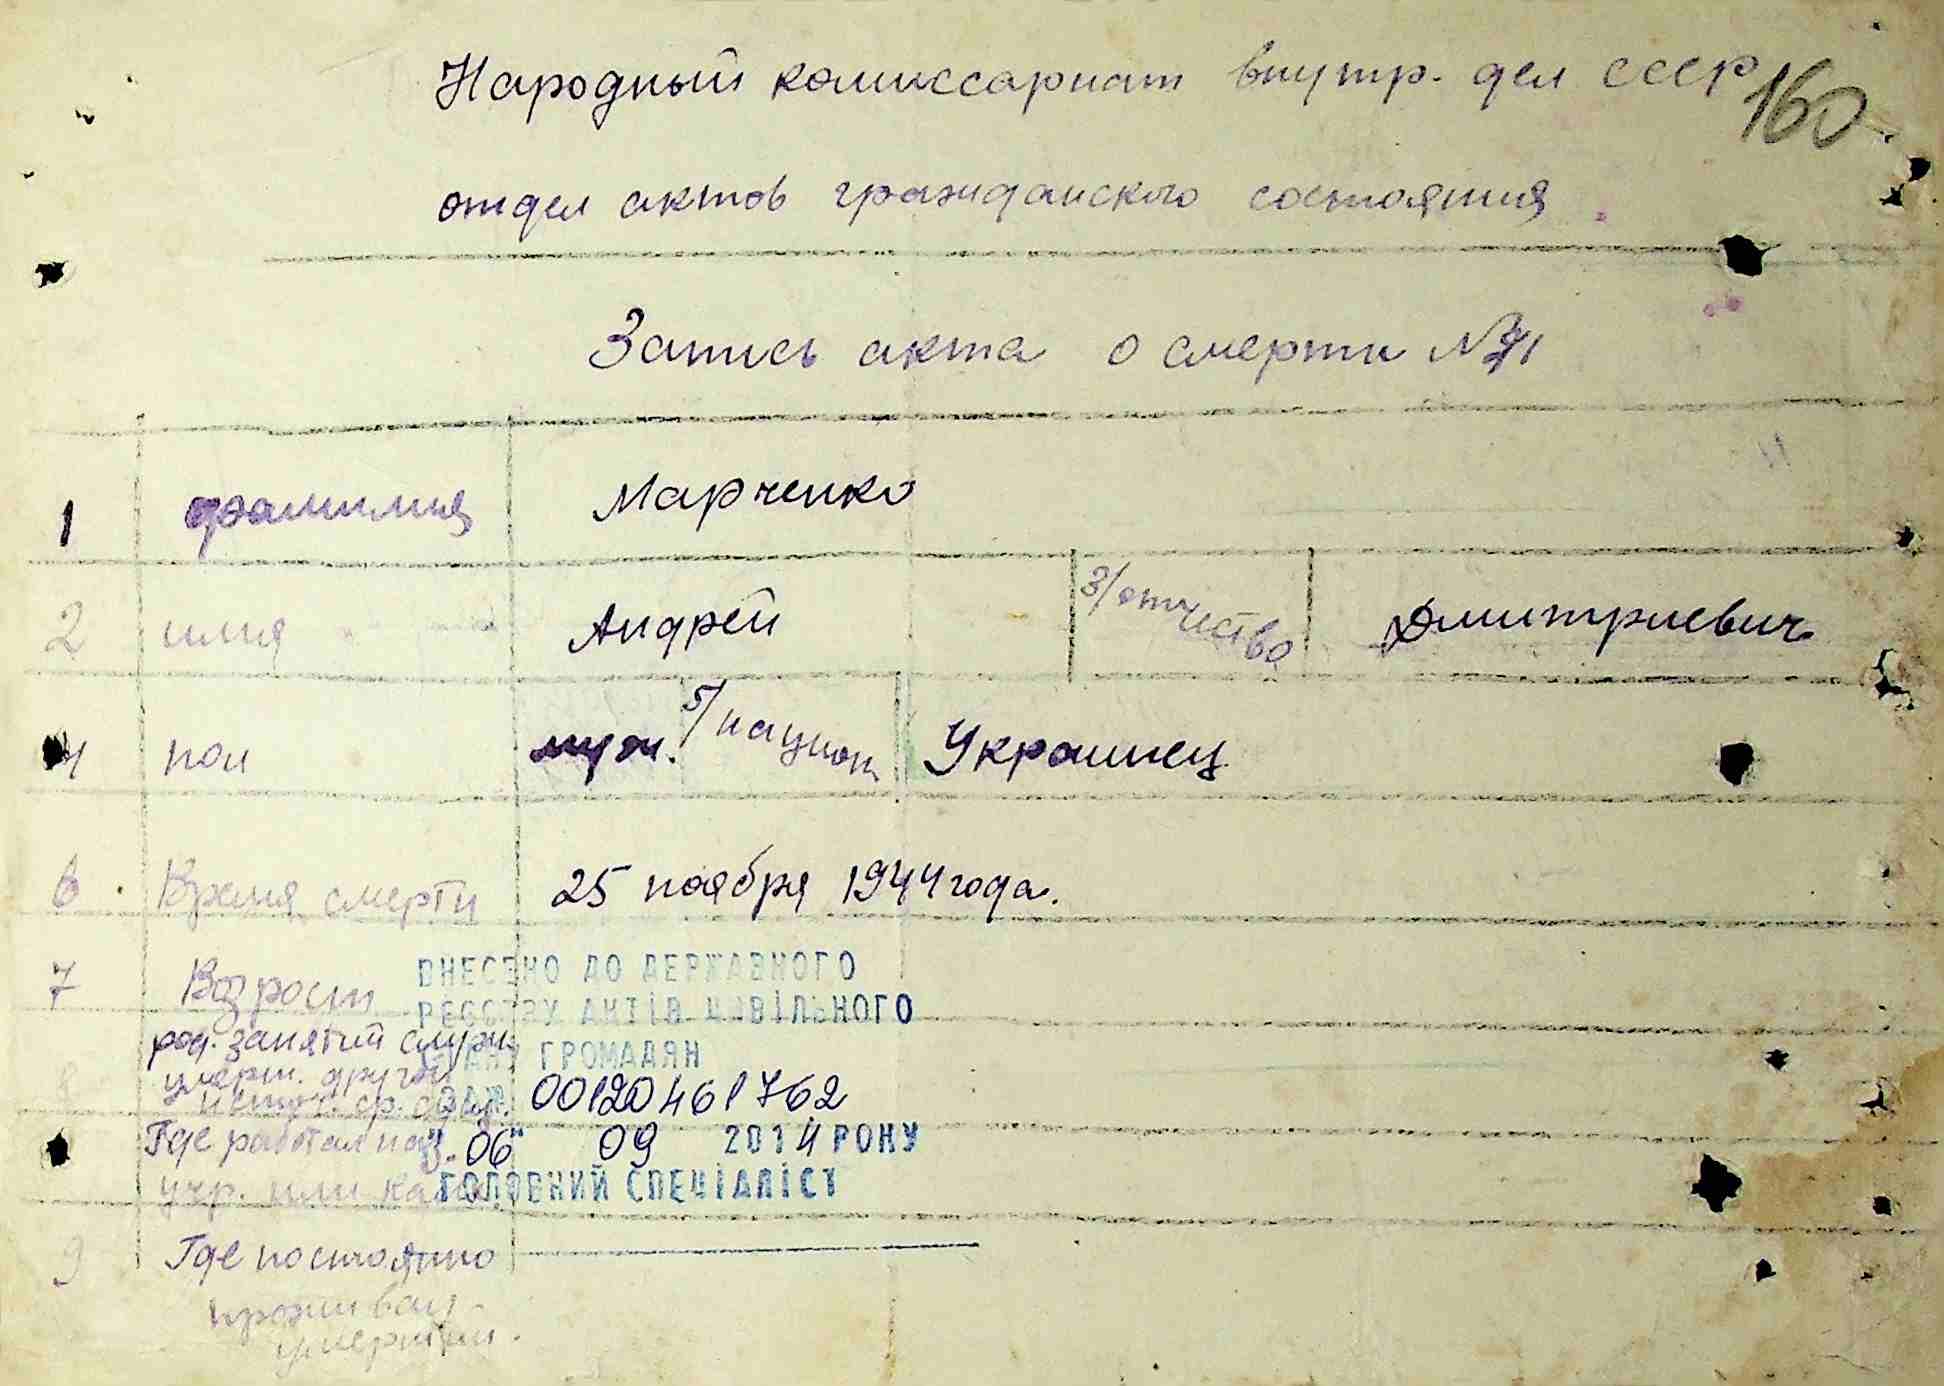 Народный комиссариат внутр. дел СССР
160
отдел актов гражданского состояния
Запись акта о смерти №
1 фамилия Марченко
2 имя Андрей 3/отчество Дмитриевич
4 пол муж. 5/национ. Украинец
6 Время смерти 25 ноября 1944 года.
7 Возраст
ВНЕСЕНО ДО ДЕРЖАВНОГО
РЕЄСТРУ АКТІВ ЦИВІЛЬНОГО
СТАНУ ГРОМАДЯН
род. занятий служ.
умерш.
00120461762
Где работал
"06" 09 2014 РОКУ
учр. или
ГОЛОВНИЙ СПЕЦІАЛІСТ
9 Где постоянно
проживал
умерший.